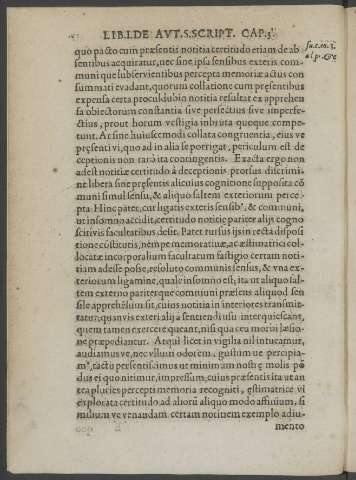 LIB.I.DE AVT.S.SCRIPT. CAP.3.
quo pacto cum præsentis notitia certitudo etiam de ab
sentibus acquiratur, nec sine ipsa sensibus exteris com-
muni que subservientibus percepta memoriæ actus con
summati evadant, quorum collatione cum presentibus
expensa certa proculdubio notitia resultat ex apprehen
sa obiectorum constantia sive perfectius sive imperfe-
ctius, prout horum vestigia in bruta queque compe-
tunt. At sine huiuscemodi collata congruentia, eius ve
presenti vi, quo ad in alia se porrigat, periculum est de
ceptionis non raro ita contingentis. Exacta ergo non
adest notitiæ certitudo à deceptionis prorsus discrimi-
ne libera sine presentis alicuius cognitione supposita cō
muni simul sensu, & aliquo saltem exteriorum perce-
pta. Hinc patet, cur ligatis exteris sensib9, & communi,
ut in somno accidit, certitudo notitie pariter alijs cogno
scitivis facultatibus desit. Patet rursus ijs in recta disposi
tione cōstitutis, nempe memorativæ, ac æstimatrici col-
locatæ incorporalium facultatum fastigio certam noti-
tiam adesse posse, resoluto communis sensus, & vna ex-
teriorum ligamine, quale in somno est; ita ut aliquo sal-
tem externo pariterque communi præsens aliquod sen
sile apprehēsum sit, cuius notitia in interiores transmit-
tatur; quanvis exteri alij à sentiendi usu interquiescant,
quem tamen exercere queant, nisi qua ceu morbi læsio-
ne præpediantur. Atqui licet in vigilia nil intueamur,
audiamus ve, nec vllum odorem, gustum ue percipia-
m9, tactu persentiscimus ut minimum nostrę molis pō
dus ei quo nitimur, impressum, cuius præsentis ita ut an
tea pluries percepti memoria recogniti, ęstimatrice vi
explorata certitudo ad aliorū aliquo modo affinium, si
milium ve venandam certam notitiem exemplo adiu-
mento